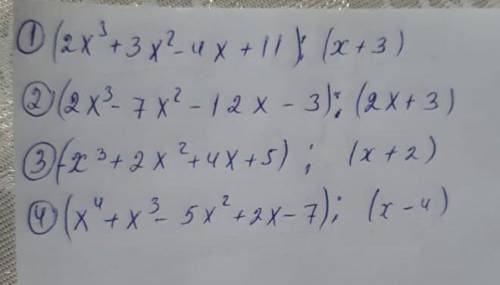 ① (2x³+3x²-4x+11) : (x+3)
② (2x³-7x²-12x-3) : (2x+3)
③ (-x³+2x²+4x+5) ; (x+2)
④ (x⁴+x³-5x²+2x-7) ; (x-4)